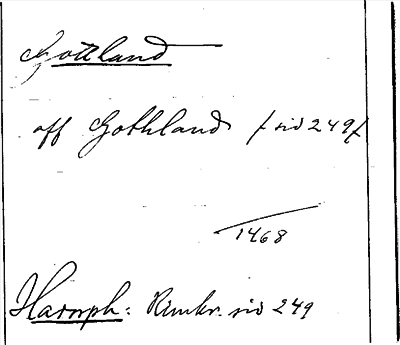 Gottland
off Gothland /sid 249/
1468
Harnph: Rimkr. sid 249